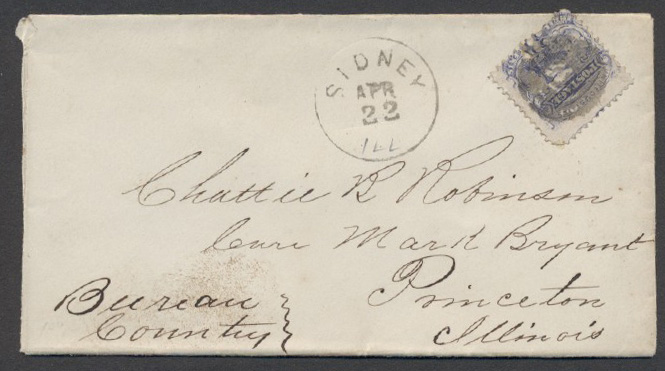 SIDNEY
APR
22
ILL
Chattie R Robinson
Care Mark Bryant
Princeton
Illinois
Bureau
County